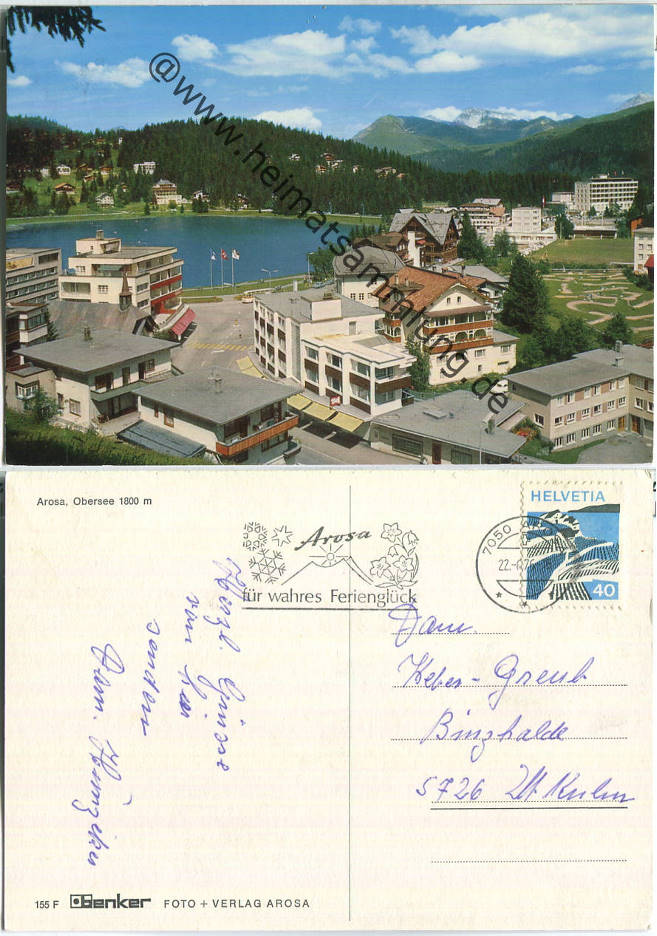 @www.heimatsammlung.de
Arosa, Obersee 1800 m
Arosa
für wahres Ferienglück
7050
22.
HELVETIA
40
Herzl. Grüsse
von hier
senden
Fam. Hunziker
Fam.
Weber-Greub
Binzhalde
5726 Ut. Kulm
155 F benker FOTO + VERLAG AROSA